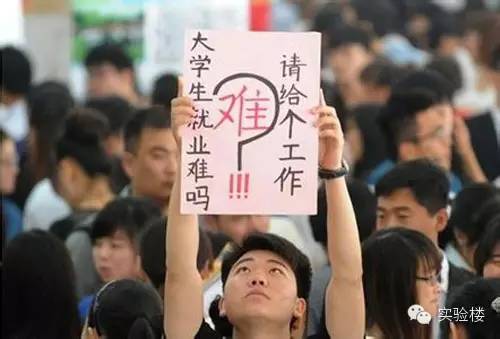 大学生就业难吗
难
?
!!!
请给个工作
实验楼